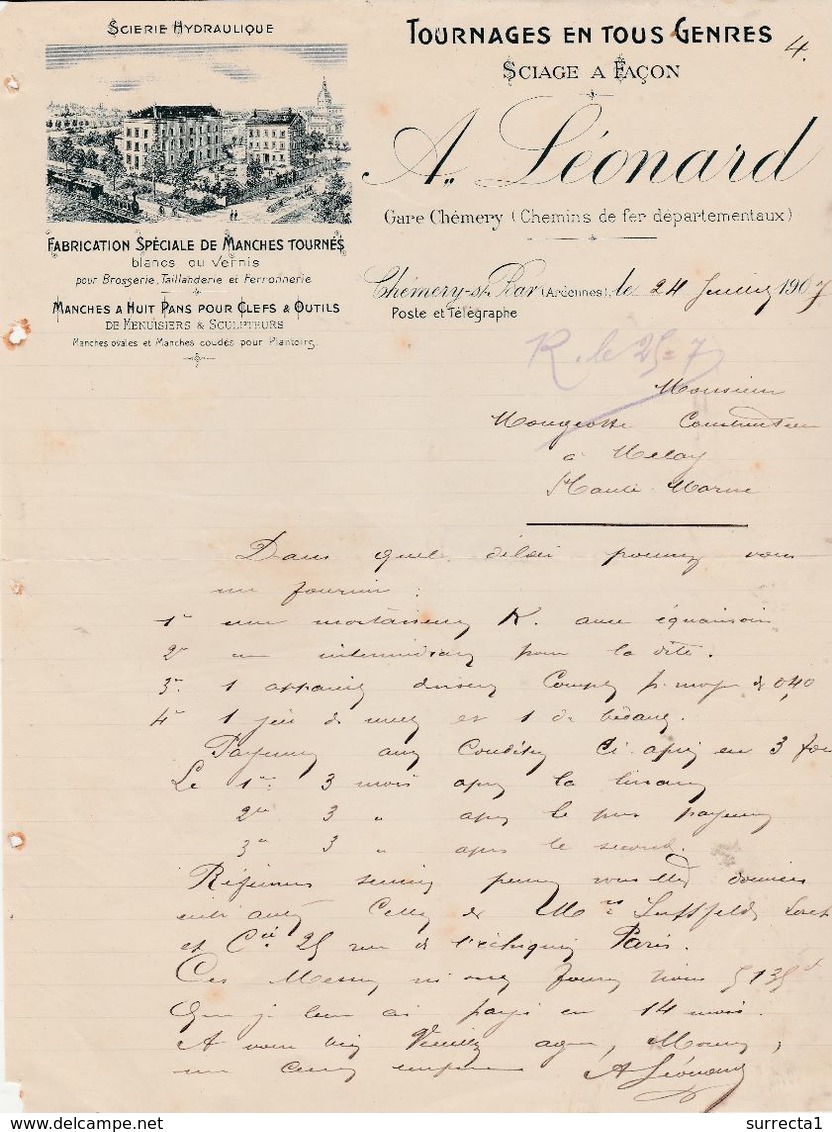 SCIERIE HYDRAULIQUE
TOURNAGES EN TOUS GENRES
4.
SCIAGE A FAÇON
A. Léonard
Gare Chémery (Chemins de fer départementaux)
FABRICATION SPÉCIALE DE MANCHES TOURNÉS
blancs ou Vernis
pour Brosserie, Taillanderie et Ferronnerie
MANCHES A HUIT PANS POUR CLEFS & OUTILS
DE MENUISIERS & SCULPTEURS
Manches ovales et Manches coudés pour Plantoirs
Chémery-s/-Bar (Ardennes), le 24 Juillet 1907
Poste et Télégraphe
R. le 25=7
Monsieur
Constructeur
à Melay
Hte Haute-Marne
Dans quel délai pourrez vous
me fournir :
1° une mortaiseuse K. avec équarrissoir
2° un intermédiaire pour la dite.
3° 1 appareil diviseur Complet p. moyeu de 0,40
4° 1 jeu de et 1 de bédanes.
Payement aux Conditions Ci après en 3 fois
Le 1er 3 mois après la livraison
2e 3 " après le 1er payement
3e 3 " après le second.
Références pouvez vous
entre autres Celles de Mrs
et Cie 25 rue de l'échiquier Paris.
Ces Messieurs m'ont fourni pour 5135
Que je leur ai payé en 14 mois.
A vous lire Veuillez agréer, Monsieur,
mes A Léonard
surrecta1